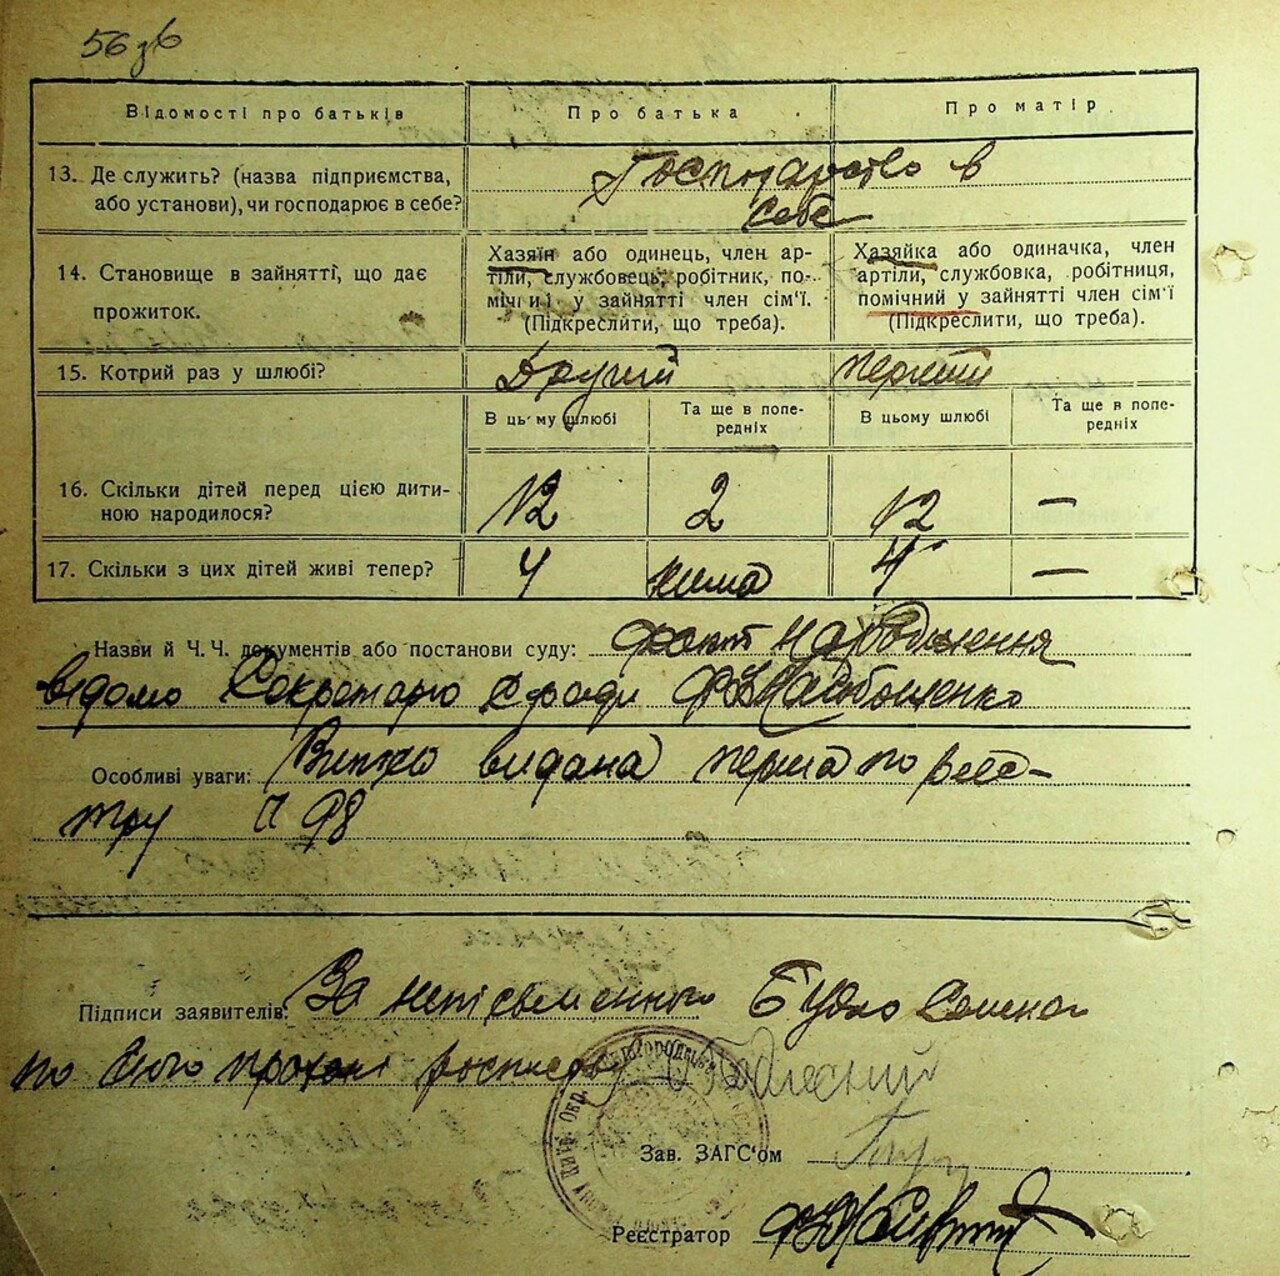 56 зв
Відомості про батьків
Про батька
Про матір
13. Де служить? (назва підприємства,
або установи), чи господарює в себе?
Господарство в
себе
14. Становище в зайнятті, що дає
прожиток.
Хазяїн або одинець, член ар-
тіли, службовець, робітник, по-
мічний у зайнятті член сім'ї.
(Підкреслити, що треба).
Хазяйка або одиначка, член
артіли, службовка, робітниця,
помічний у зайнятті член сім'ї
(Підкреслити, що треба).
15. Котрий раз у шлюбі?
Другий
перший
В цьому шлюбі
Та ще в попе-
редніх
В цьому шлюбі
Та ще в попе-
редніх
16. Скільки дітей перед цією дити-
ною народилося?
12
2
12
—
17. Скільки з цих дітей живі тепер?
4
нима
4
—
Назви й Ч.Ч. документів або постанови суду: факт народження
відомо Секретарю с ради
Особливі уваги: Випись видана перша по реєс-
тру № 98
Підписи заявителів: За неписьменного Будко Семена
по його проханні росписався Подлесний
Зав. ЗАГС'ом
Реєстратор